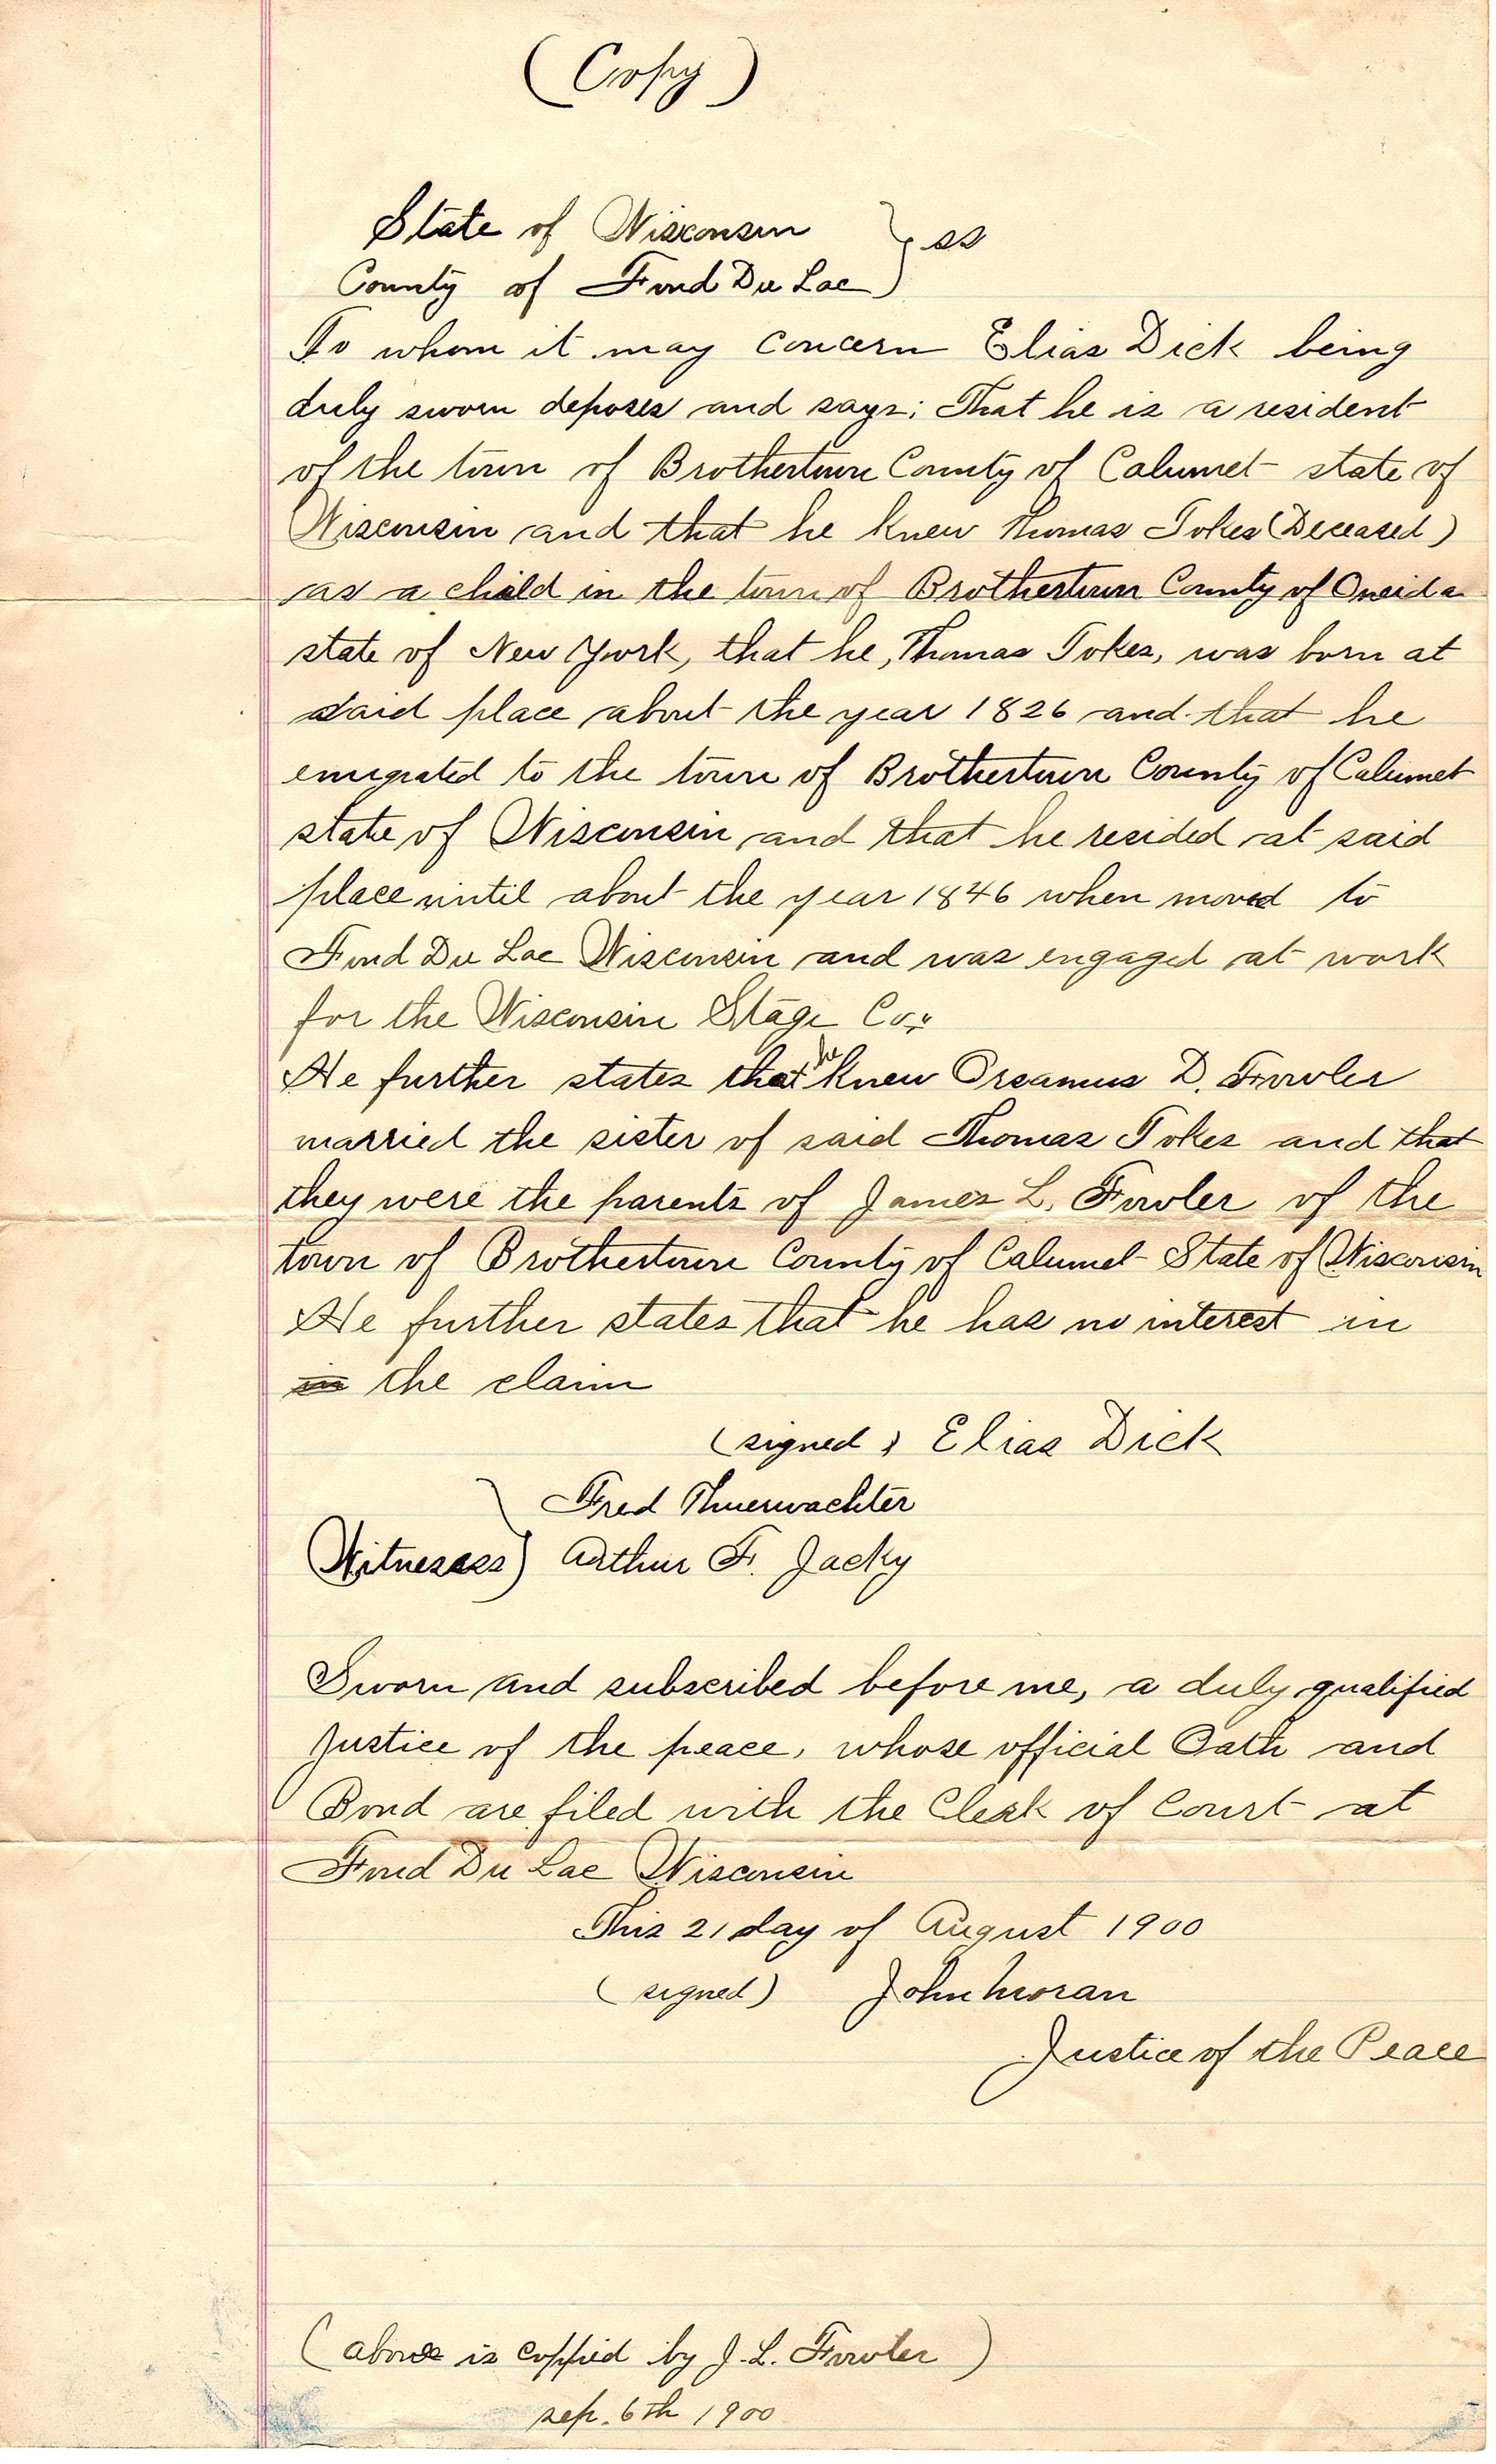 (Copy)
State of Wisconsin } ss
County of Fond Du Lac
To whom it may concern Elias Dick being
duly sworn deposes and says; That he is a resident
of the town of Brothertown County of Calumet state of
Wisconsin and that he knew Thomas Tokes (Deceased)
as a child in the town of Brothertown County of Oneida
state of New York, that he, Thomas Tokes, was born at
said place about the year 1826 and that he
emigrated to the town of Brothertown County of Calumet
state of Wisconsin and that he resided at said
place until about the year 1846 when moved to
Fond Du Lac Wisconsin and was engaged at work
for the Wisconsin Stage Co.,
He further states that he knew Orsamus D. Fowler
married the sister of said Thomas Tokes and that
they were the parents of James L. Fowler of the
town of Brothertown County of Calumet State of Wisconsin
He further states that he has no interest in
in the claim
(signed) Elias Dick
Fred Thuerwachter
Witnesses } Arthur F. Jacky
Sworn and subscribed before me, a duly qualified
Justice of the peace, whose official Oath and
Bond are filed with the Clerk of Court at
Fond Du Lac Wisconsin
This 21 day of August 1900
(signed) John Moran
Justice of the Peace
(above is coppied by J. L. Fowler)
sep. 6th 1900